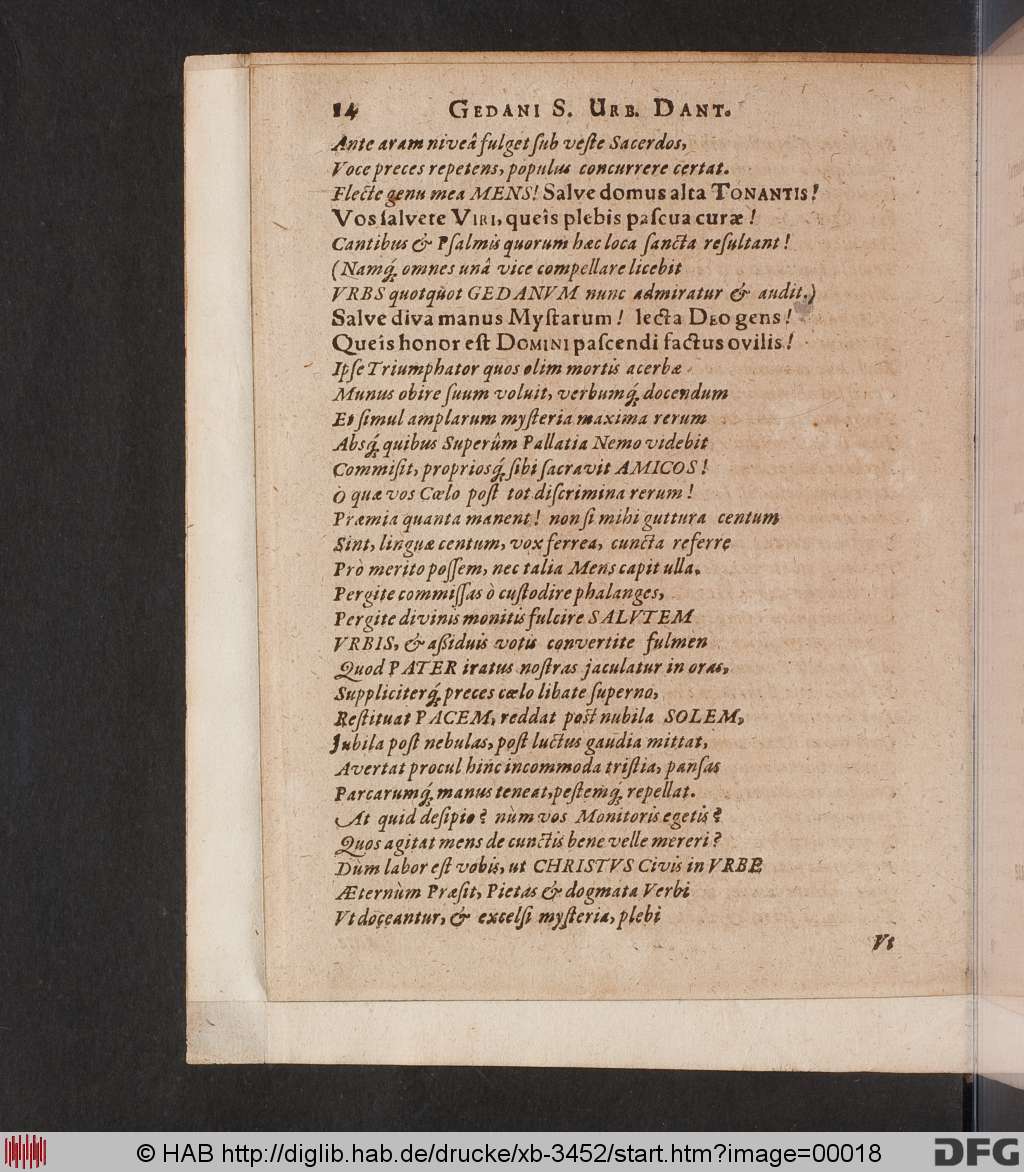 14 GEDANI S. URB. DANT.
Ante aram niveâ fulget ſub veſte Sacerdos,
Voce preces repetens, populus concurrere certat.
Flecte genu mea MENS! Salve domus alta TONANTIS!
Vos ſalvete VIRI, queîs plebis paſcua curæ!
Cantibus & Pſalmis quorum hæc loca ſancta reſultant!
(Namq́; omnes unâ vice compellare licebit
VRBS quotquot GEDANVM nunc admiratur & audit.)
Salve diva manus Myſtarum! lecta DEO gens!
Queîs honor eſt DOMINI paſcendi factus ovilis!
Ipſe Triumphator quos olim mortis acerbæ
Munus obire ſuum voluit, verbumq́; docendum
Et ſimul amplarum myſteria maxima rerum
Absq́; quibus Superûm Pallatia Nemo videbit
Commiſit, propriosq́; ſibi ſacravit AMICOS!
O quæ vos Cœlo poſt tot diſcrimina rerum!
Præmia quanta manent! non ſi mihi guttura centum
Sint, linguæ centum, vox ferrea, cuncta referre
Prò merito poſſem, nec talia Mens capit ulla.
Pergite commiſſas ò cuſtodire phalanges,
Pergite divinis monitis fulcire SALVTEM
VRBIS, & aßiduis votis convertite fulmen
Quod PATER iratus noſtras jaculatur in oras,
Suppliciterq́; preces cœlo libate ſuperno,
Reſtituat PACEM, reddat poſt nubila SOLEM,
Jubila poſt nebulas, poſt luctus gaudia mittat,
Avertat procul hinc incommoda triſtia, panſas
Parcarumq́; manus teneat, peſtemq́; repellat.
At quid deſipio? nùm vos Monitoris egetis?
Quos agitat mens de cunctis bene velle mereri?
Dùm labor eſt vobis, ut CHRISTVS Civis in VRBE
Æternùm Præſit, Pietas & dogmata Verbi
Vt doceantur, & excelſi myſteria, plebi
Vt
© HAB http://diglib.hab.de/drucke/xb-3452/start.htm?image=00018
DFG